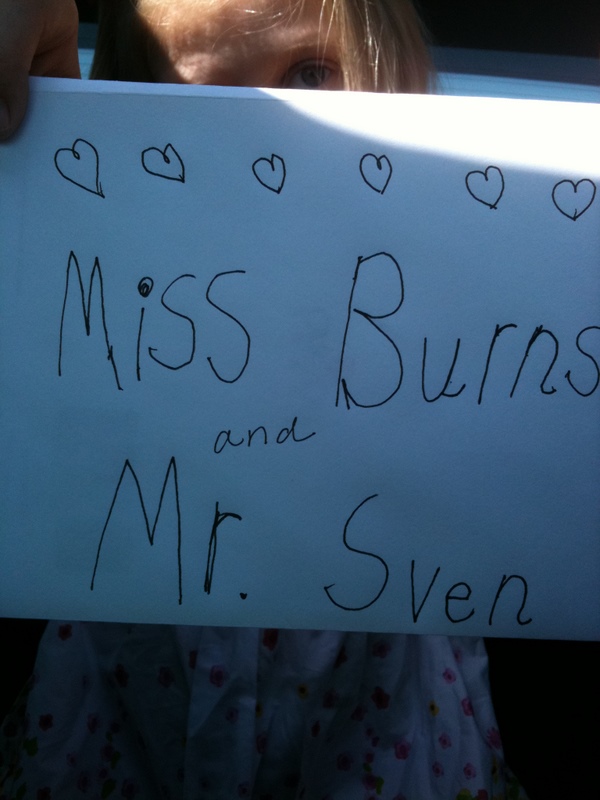 Miss Burns
and
Mr. Sven